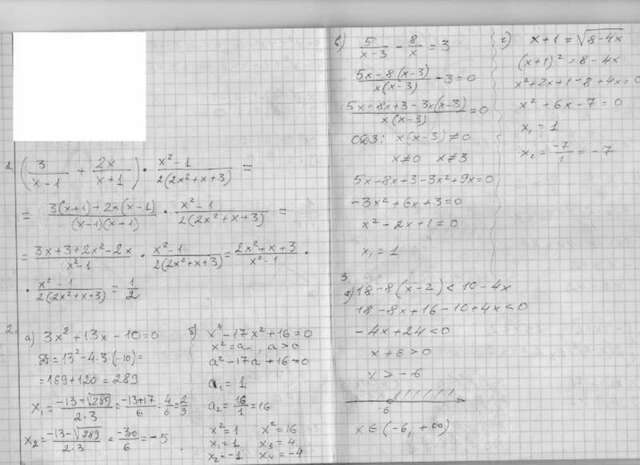 1. (3/(x-1) + 2x/(x+1)) · (x²-1)/(2(2x²+x+3)) =
= (3(x+1)+2x(x-1))/((x-1)(x+1)) · (x²-1)/(2(2x²+x+3)) =
= (3x+3+2x²-2x)/(x²-1) · (x²-1)/(2(2x²+x+3)) = (2x²+x+3)/(x²-1) ·
· (x²-1)/(2(2x²+x+3)) = 1/2
2. а) 3x²+13x-10=0
D=13²-4·3·(-10)=
=169+120=289
x₁=(-13+√289)/(2·3)=(-13+17)/6=4/6=2/3
x₂=(-13-√289)/(2·3)=-30/6=-5
б) x⁴-17x²+16=0
x²=a, a>0
a²-17a+16=0
a₁=1
a₂=16/1=16
x²=1 x²=16
x₁=1 x₃=4
x₂=-1 x₄=-4
в) 5/(x-3) - 8/x = 3
(5x-8(x-3))/(x(x-3)) -3=0
(5x-8x+3-3x(x-3))/(x(x-3))=0
ОДЗ: x(x-3)≠0
x≠0 x≠3
5x-8x+3-3x²+9x=0
-3x²+6x+3=0
x²-2x+1=0
x₁=1
г) x+1=√(8-4x)
(x+1)²=8-4x
x²+2x+1-8+4x=0
x²+6x-7=0
x₁=1
x₂=-7/1=-7
3.
а) 18-8(x-2)<10-4x
18-8x+16-10+4x<0
-4x+24<0
x+6>0
x>-6
6
x∈(-6, +∞)